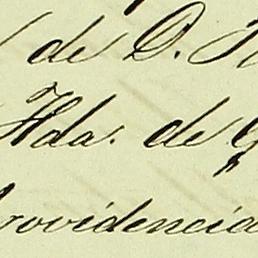 de D.
Hda. de
rovidencia